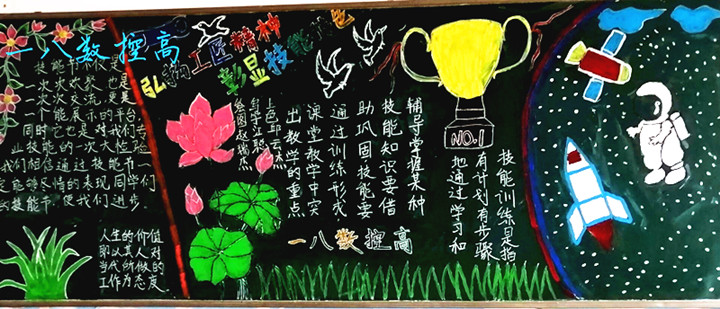 一八数控高
弘扬工匠精神
彰显技能
技能节不仅是
一次次欢聚也是
一次次交流,更是
一个能展示的平台,
同时它也是对我们专
业技能的一次大检验
我们相信通过技能节一
定能够尽情的表现同学们
技能节,使我们进步
人生的价值
即以其人对
当代所做的
工作为态度
NO.1
技能训练是指
有计划有步骤
地通过学习和
辅导掌握某种
技能知识要借
助巩固技能要
通过训练形成
课堂教学中突
出教学的重点
一八数控高